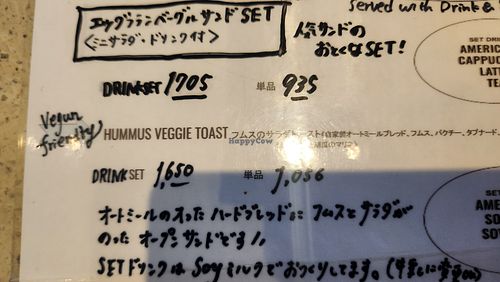 served with Drink &
エッグタランベーグルサンド SET
〈ミニサラダ・ドリンク付〉
人気サンドの
おとくなSET!
SET DRI
AMERIC
CAPPUC
LATT
TEA
DRINKSET 1705 単品 935
Vegan
friendly
HUMMUS VEGGIE TOAST フムスのサラダトースト(自家製オートミールブレッド、フムス、パクチー、タプナード、
HappyCow
のマリネ)
DRINK SET 1,650 単品 1,056
オートミールの入った ハードブレッドに フムスと サラダが
のった オープンサンドです!!
SETドリンクは Soyミルクでおつくりしてます。(牛乳に変更
AME
SO
SOY